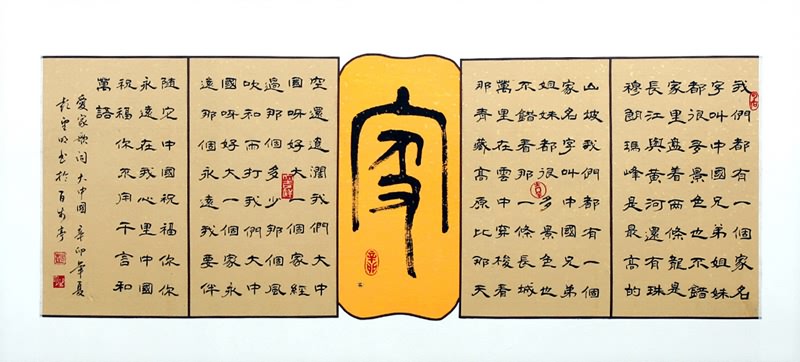 我們都有一個家名
字叫中國兄弟姐妹
都很多景色也不錯
家里盘着两條龍是
長江與黄河還有珠
穆朗瑪峰是最高的
山坡我們都有一個
家名字叫中國兄弟
姐妹都很多景色也
不錯看那一條長城
萬里在雲中穿梭看
那青藏高原比那天
家
空還遼濶我們大中
國呀好大一個家經
過那個多少那個風
吹和雨打我們大中
國呀好大一個家永
遠那個永遠我要伴
随它中國祝福你你
永遠在我心里中國
祝福你不用千言和
萬語
愛家歌詞大中國辛卯華夏